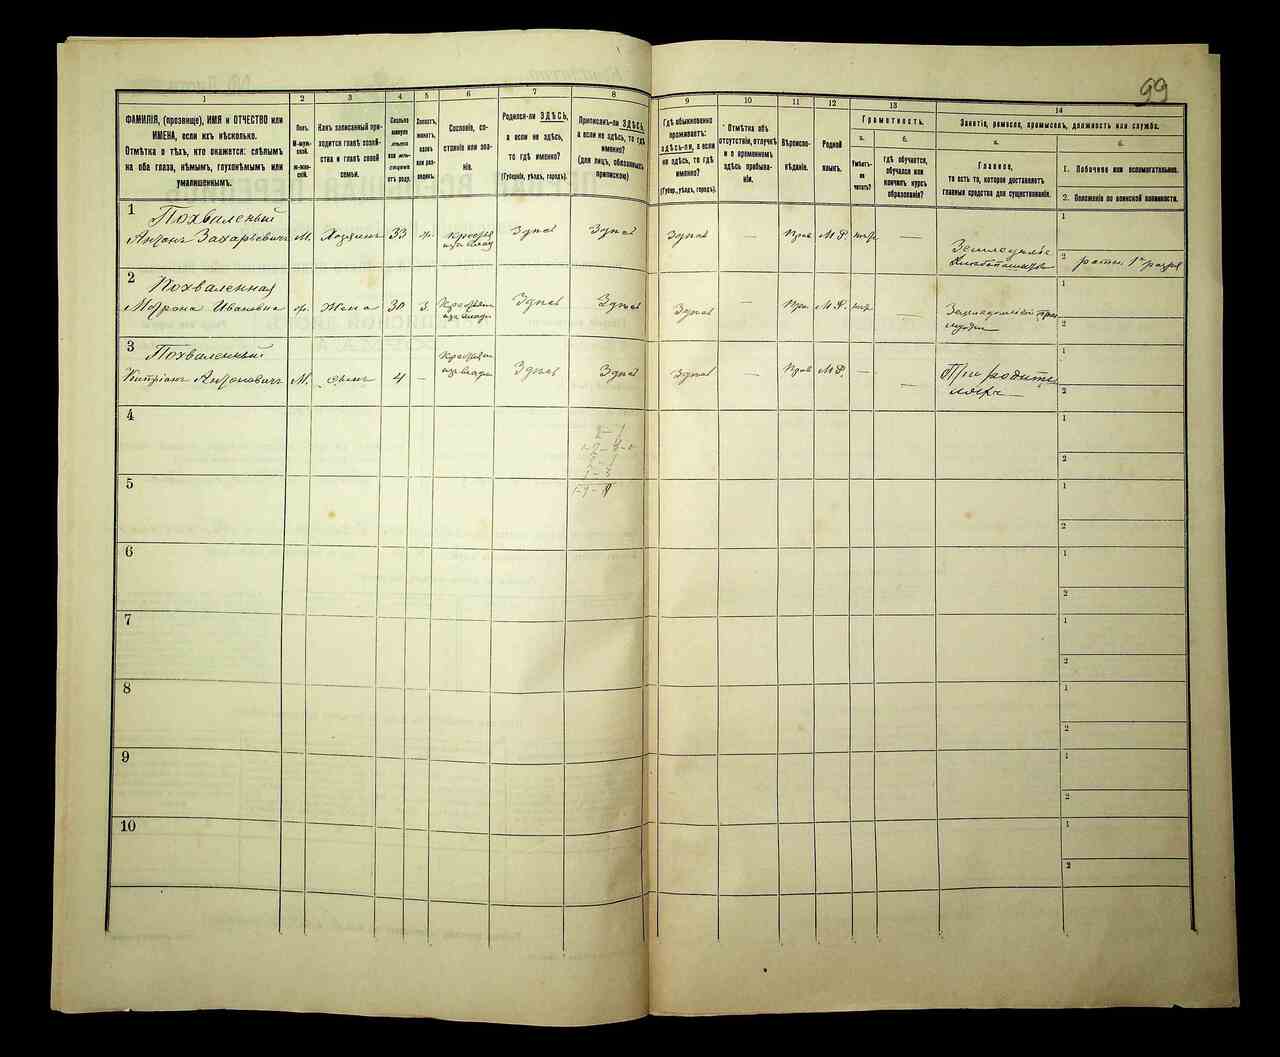 99
1
2
3
4
5
6
7
8
9
10
11
12
13
14
ФАМИЛІЯ, (прозвище), ИМЯ и ОТЧЕСТВО или
ИМЕНА, если ихъ нѣсколько.
Отмѣтка о тѣхъ, кто окажется: слѣпымъ
на оба глаза, нѣмымъ, глухонѣмымъ или
умалишеннымъ.
Полъ.
М-муж-
ской.
Ж-жен-
скій.
Какъ записанный при-
ходится главѣ хозяй-
ства и главѣ своей
семьи.
Сколько
минуло
лѣтъ
или мѣ-
сяцевъ
отъ роду.
Холостъ,
женатъ,
вдовъ
или раз-
веденъ.
Сословіе, со-
стояніе или зва-
ніе.
Родился-ли ЗДѢСЬ,
а если не здѣсь,
то гдѣ именно?
(Губернія, уѣздъ, городъ).
Приписанъ-ли ЗДѢСЬ,
а если не здѣсь, то гдѣ
именно?
(для лицъ, обязанныхъ
припискою)
Гдѣ обыкновенно
проживаетъ:
здѣсь-ли, а если
не здѣсь, то гдѣ
именно?
(Губер., уѣздъ, городъ).
Отмѣтка объ
отсутствіи, отлучкѣ
и о временномъ
здѣсь пребыва-
ніи.
Вѣроиспо-
вѣданіе.
Родной
языкъ.
Грамотность.
а.
Умѣетъ-
ли
читать?
б.
гдѣ обучается,
обучался или
кончилъ курсъ
образованія?
Занятіе, ремесло, промыселъ, должность или служба.
а.
Главное,
то есть то, которое доставляетъ
главныя средства для существованія.
б.
1. Побочное или вспомогательное.
2. Положеніе по воинской повинности.
1
Похваленый
Антонъ Захарьевичъ М. Хозяинъ 33 ж. Здѣсь Здѣсь Здѣсь — Прав М.Р. —
1
2 ратн. 1го разряд
2
Похваленная
Ивановна ж. Жена 38 З. Здѣсь Здѣсь Здѣсь — Пра М.Р. —
1
2
3
Похваленный
Кипріанъ Антоновичъ М. сынъ 4 — Здѣсь Здѣсь Здѣсь — Прав М.Р. — —
При родите
ляхъ
1
2
4
1
2
5
1
2
6
1
2
7
1
2
8
1
2
9
1
2
10
1
2